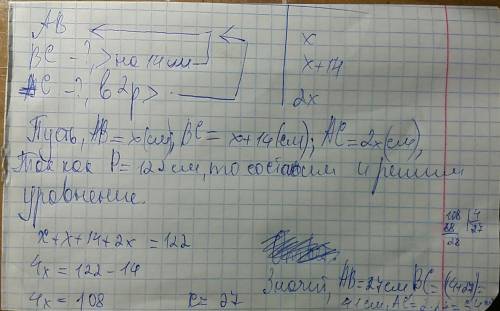 AB
BC - ?, > на 14 см
AC - ?, в 2р >
x
x+14
2x
Пусть, AB = x(см), BC = x+14(см); AC = 2x(см),
Так как P = 122 см, то составим и решим
уравнение.
x+x+14+2x = 122
4x = 122 - 14
4x = 108
x = 27
108 4
27
28
Значит, AB=27см BC=